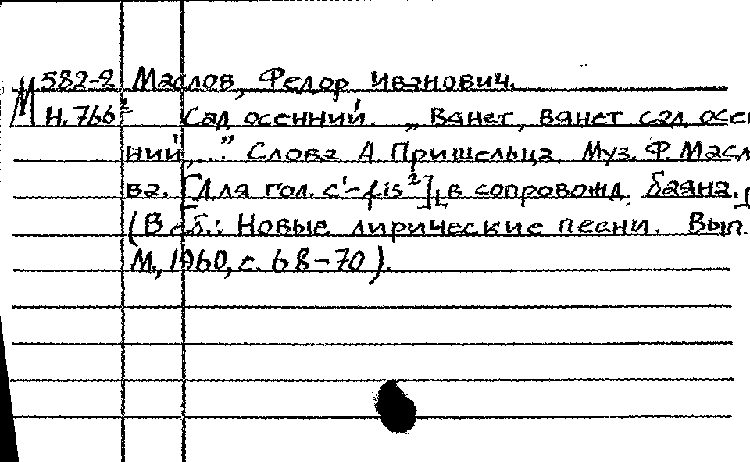 М 582-2 Маслов, Федор Иванович.
Н.766² Сад осенний. „Вянет, вянет сад осен
ний..." Слова А. Пришельца. Муз. Ф. Масл
ва. [Для гол. c¹-fis²], в сопровожд. баяна.
(В сб.: Новые лирические песни. Вып.
М., 1960, с. 68-70).